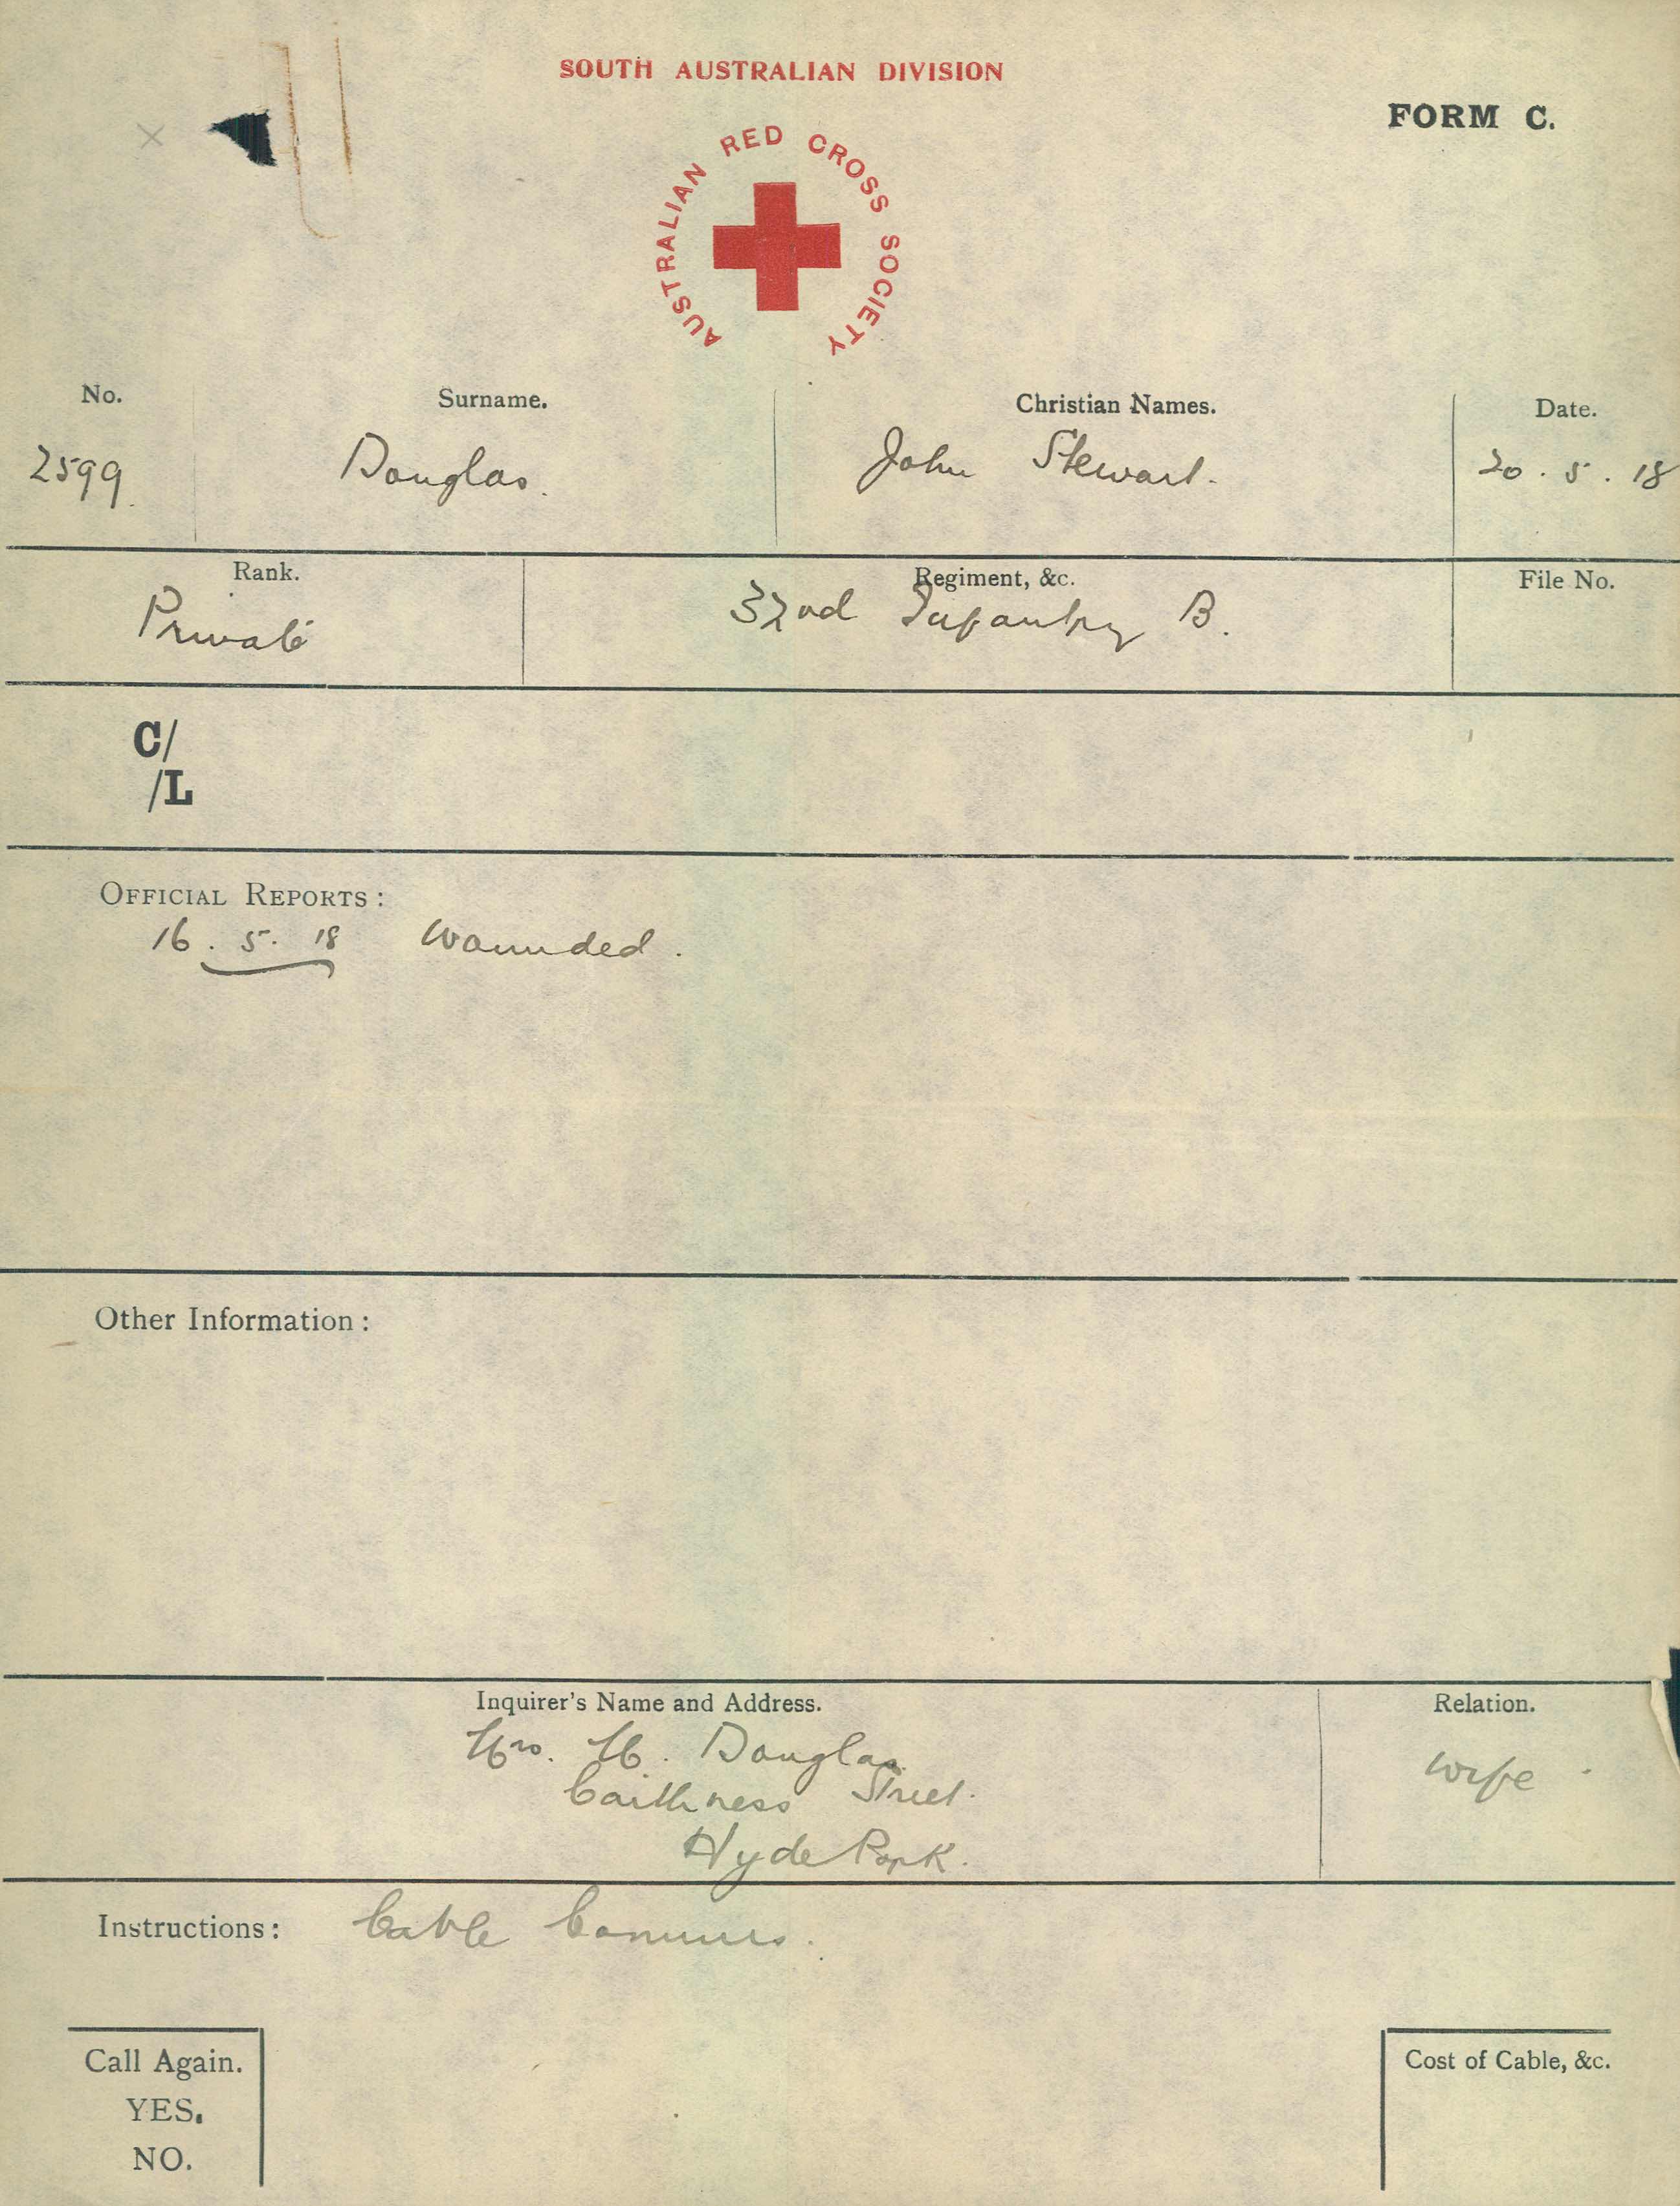 SOUTH AUSTRALIAN DIVISION
FORM C.
AUSTRALIAN RED CROSS SOCIETY
No. Surname. Christian Names. Date.
2599. Douglas. John Stewart. 20.5.18
Rank. Regiment, &c. File No.
Private 32nd Infantry B.
C/
/L
OFFICIAL REPORTS:
16.5.18 Wounded.
Other Information:
Inquirer's Name and Address. Relation.
Mrs. M. Douglas wife
Caithness Street.
Hyde Park.
Instructions: Cable
Call Again. Cost of Cable, &c.
YES.
NO.